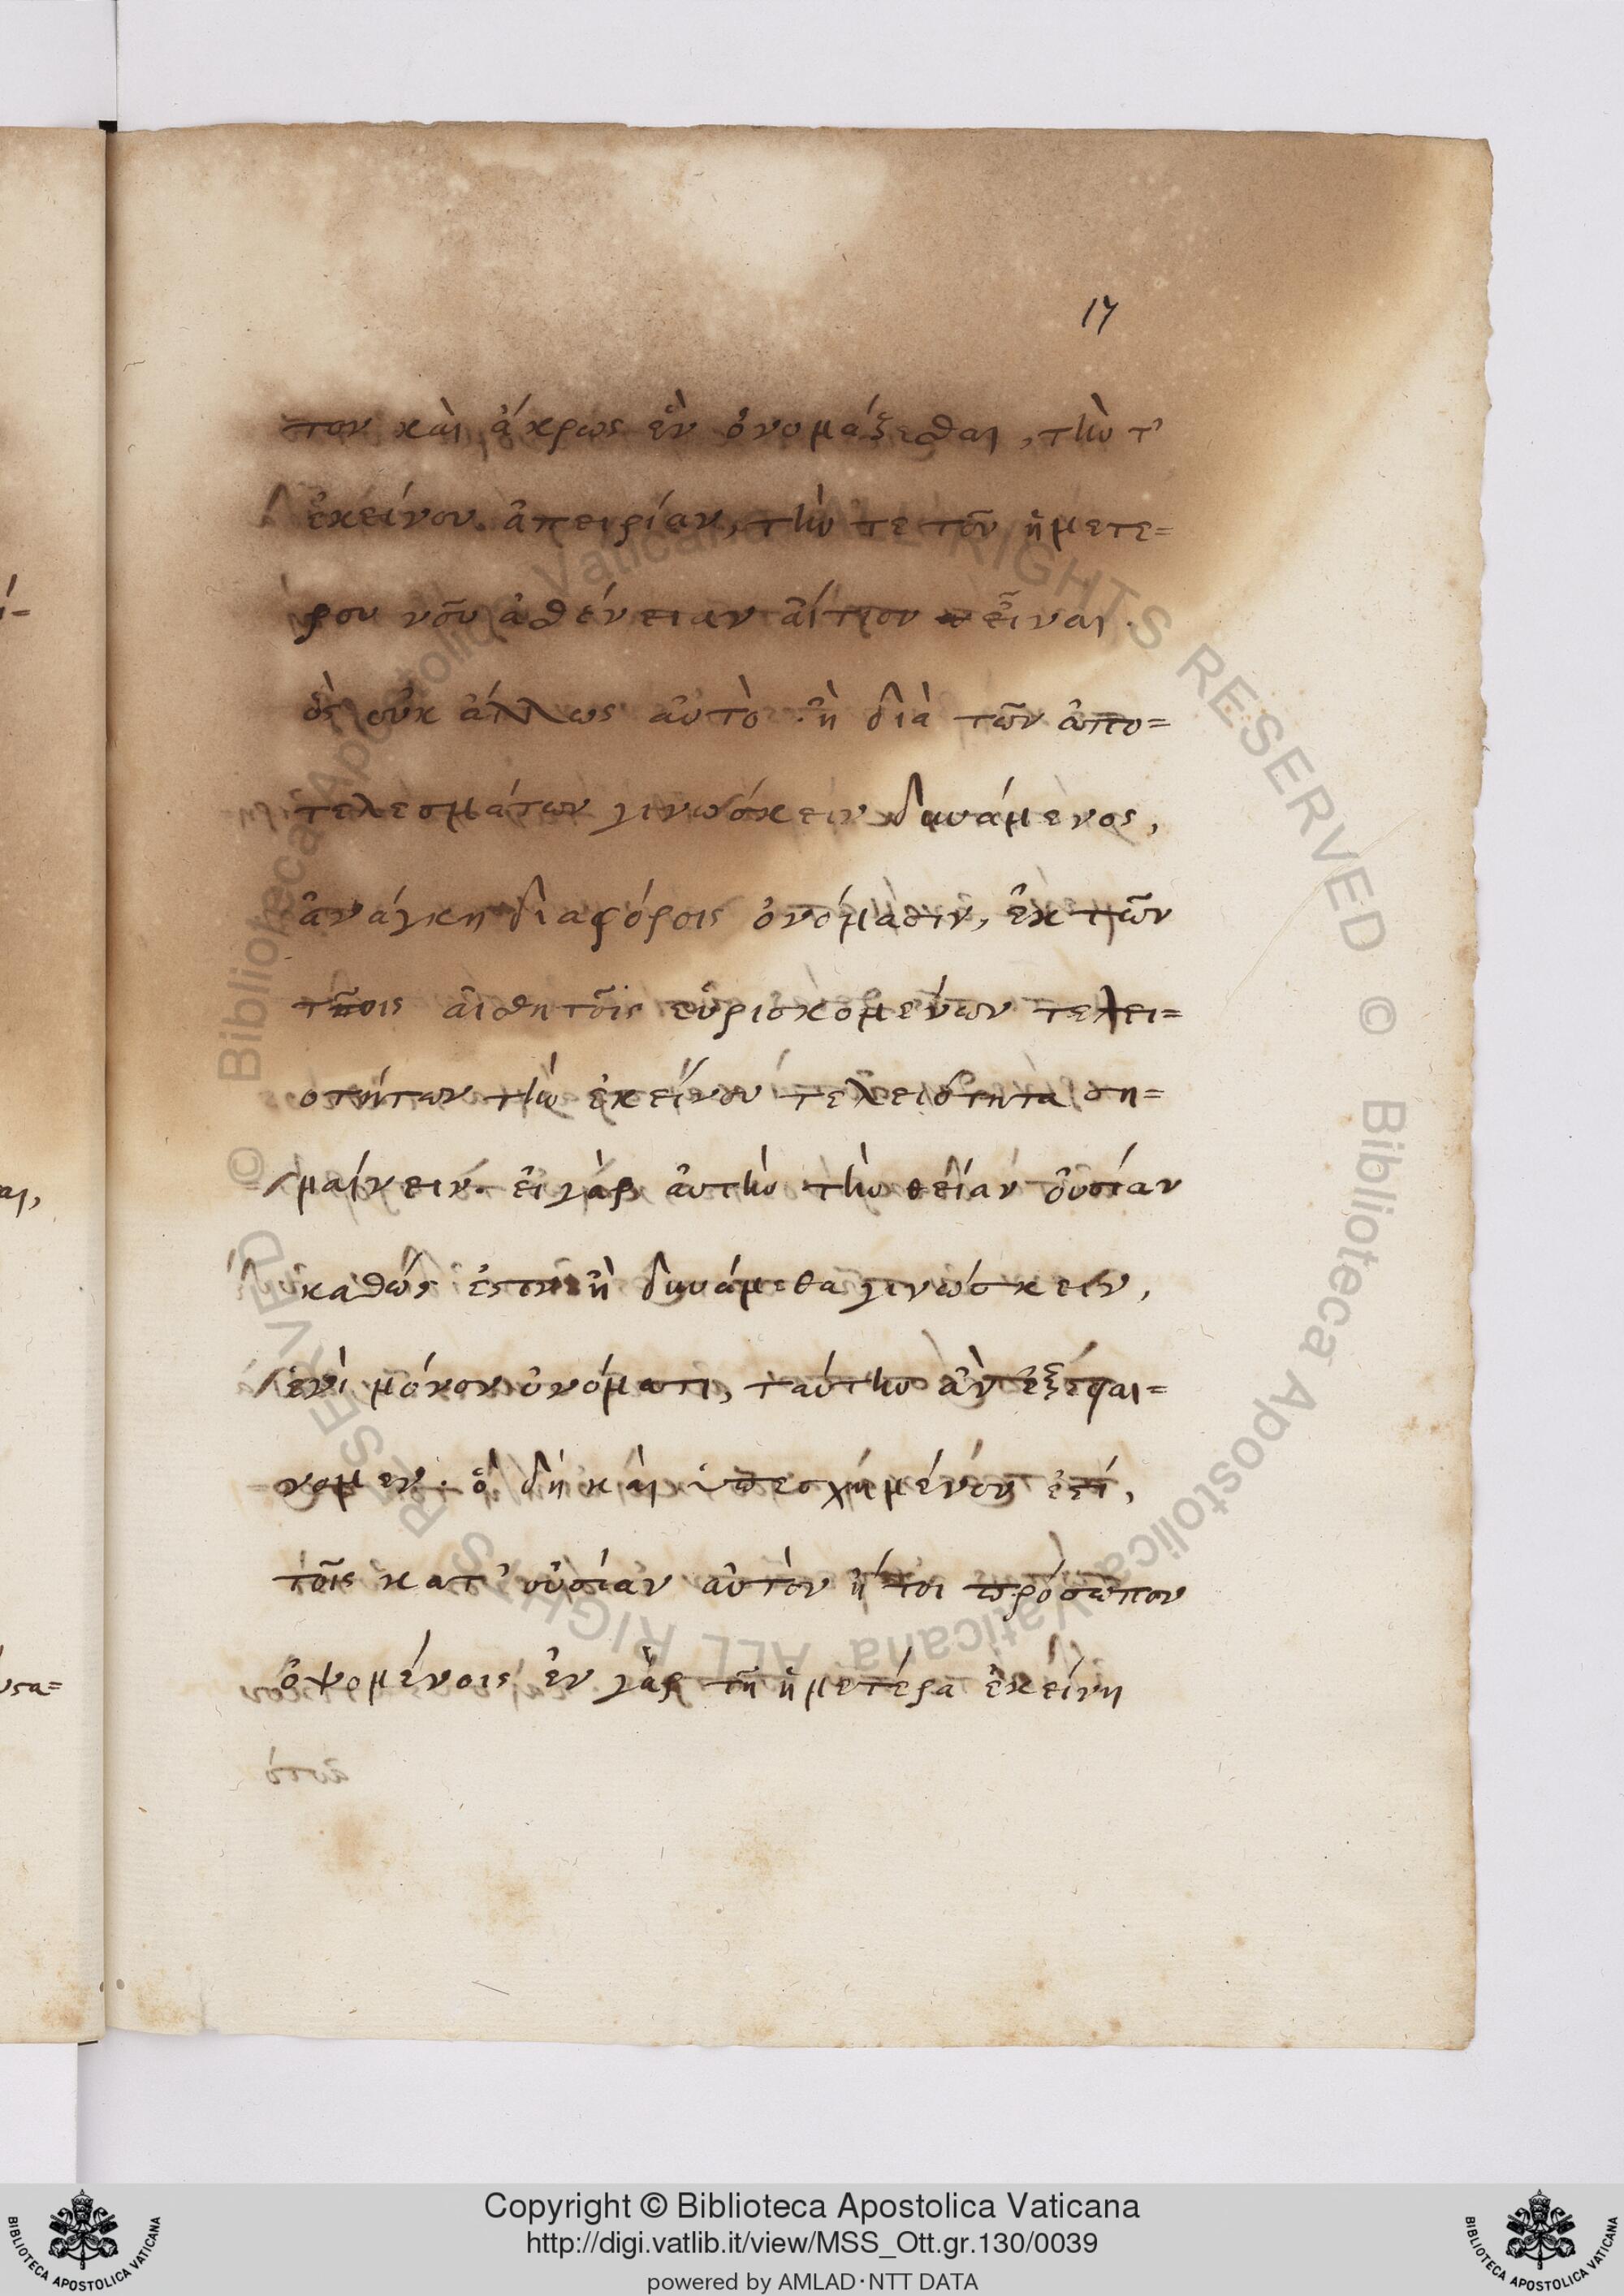 17
τον καὶ ἄκρως ἓν ὀνομάζεσθαι, τὴν τ'
ἐκείνου ἀπειρίαν, τὴν τε τοῦ ἡμετέ=
ρου νοῦ ἀσθένειαν αἴτιον εἶναι.
ὃς οὐκ ἄλλως αὐτὸ ἢ διὰ τῶν ἀπο=
τελεσμάτων γινώσκειν δυνάμενος,
ἀνάγκη διαφόροις ὀνόμασιν, ἐκ τῶν
τοῖς αἰσθητοῖς εὑρισκομένων τελει=
οτήτων τὴν ἐκείνου τελειότητα ση=
μαίνειν. εἰ γὰρ αὐτὴν τὴν θείαν οὐσίαν
καθώς ἐστιν ἢ δυνάμεθα γινώσκειν,
ἑνὶ μόνον ὀνόματι, ταύτην ἂν ἐξέφαι=
νομεν. ὃ δὴ καὶ ὑπεσχημένον ἐστί,
τοῖς κατ' οὐσίαν αὐτὸν ἤτοι πρόσωπον
ὀψομένοις ἐν γὰρ τῇ ἡμετέρα ἐκείνη
Copyright © Biblioteca Apostolica Vaticana
http://digi.vatlib.it/view/MSS_Ott.gr.130/0039
powered by AMLAD·NTT DATA
BIBLIOTECA APOSTOLICA VATICANA
BIBLIOTECA APOSTOLICA VATICANA
© Biblioteca Apostolica Vaticana ALL RIGHTS RESERVED © Biblioteca Apostolica Vaticana ALL RIGHTS RESERVED